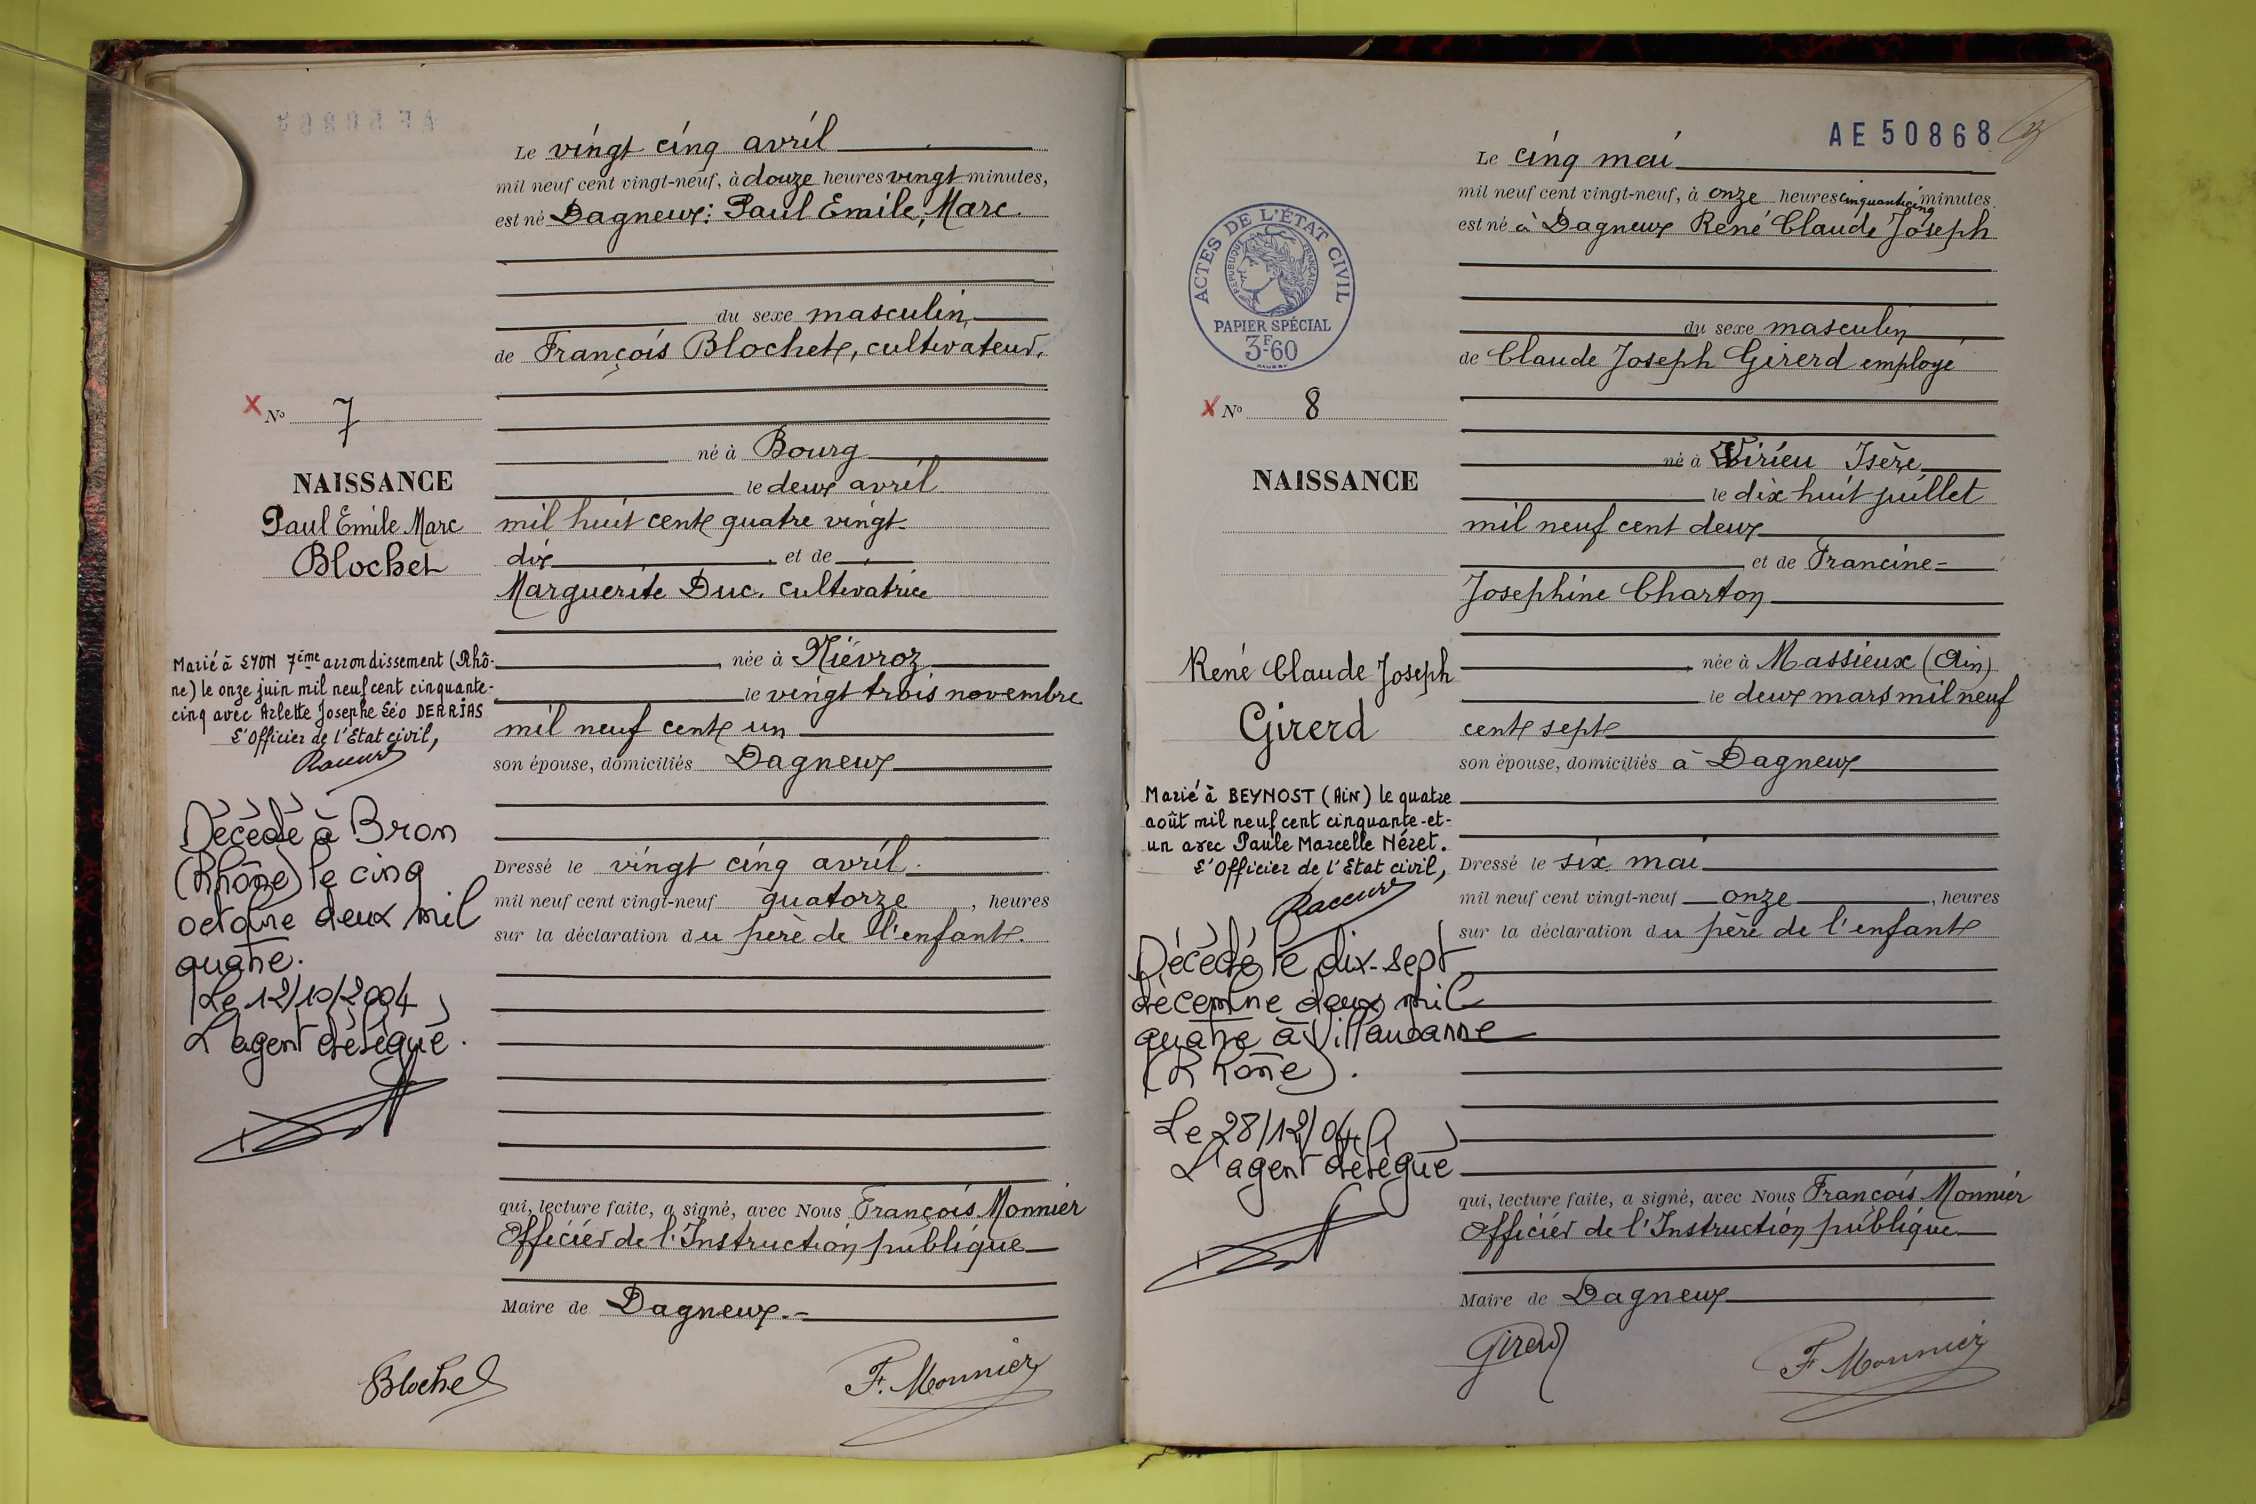 Le vingt cinq avril
mil neuf cent vingt-neuf, à douze heures vingt minutes,
est né Dagneux: Paul Emile, Marc
du sexe masculin,
de François Blochet, cultivateur,
X No 7
né à Bourg
NAISSANCE
le deux avril
Paul Emile Marc
mil huit cent quatre vingt
Blochet
dix et de
Marguerite Duc. cultivatrice
née à Niévroz
le vingt trois novembre
mil neuf cent un
son épouse, domiciliés Dagneux
Marié à LYON 7ème arrondissement (Rhô-
ne) le onze juin mil neuf cent cinquante-
cinq avec Arlette Josephe Léo DERRIAS
L'Officier de l'Etat civil,
Décédé à Bron
(Rhône) le cinq
octobre deux mil
quatre.
Le 12/10/2004
L'agent délégué.
Dressé le vingt cinq avril.
mil neuf cent vingt-neuf quatorze, heures
sur la déclaration du père de l'enfant.
qui, lecture faite, a signé, avec Nous François Monnier
Officier de l'Instruction publique
Maire de Dagneux.-
Blochet
F. Monnier
AE 50868
Le cinq mai
mil neuf cent vingt-neuf, à onze heures cinquante cinq minutes
est né à Dagneux René Claude Joseph
ACTES DE L'ÉTAT CIVIL
RÉPUBLIQUE FRANÇAISE
PAPIER SPÉCIAL
3F60
du sexe masculin
de Claude Joseph Girerd employé
X No 8
né à Virieu Isère
NAISSANCE
le dix huit juillet
mil neuf cent deux
et de Francine-
Josephine Charton
René Claude Joseph
Girerd
née à Massieux (Ain)
le deux mars mil neuf
cent sept
son épouse, domiciliés à Dagneux
Marié à BEYNOST (AIN) le quatre
août mil neuf cent cinquante-et-
un avec Paule Marcelle Néret.
L'Officier de l'Etat civil,
Décédé le dix-sept
décembre deux mil
quatre à Villeurbanne
(Rhône).
Le 28/12/04
L'agent délégué
Dressé le six mai
mil neuf cent vingt-neuf onze, heures
sur la déclaration du père de l'enfant
qui, lecture faite, a signé, avec Nous François Monnier
Officier de l'Instruction publique
Maire de Dagneux
Girerd
F. Monnier